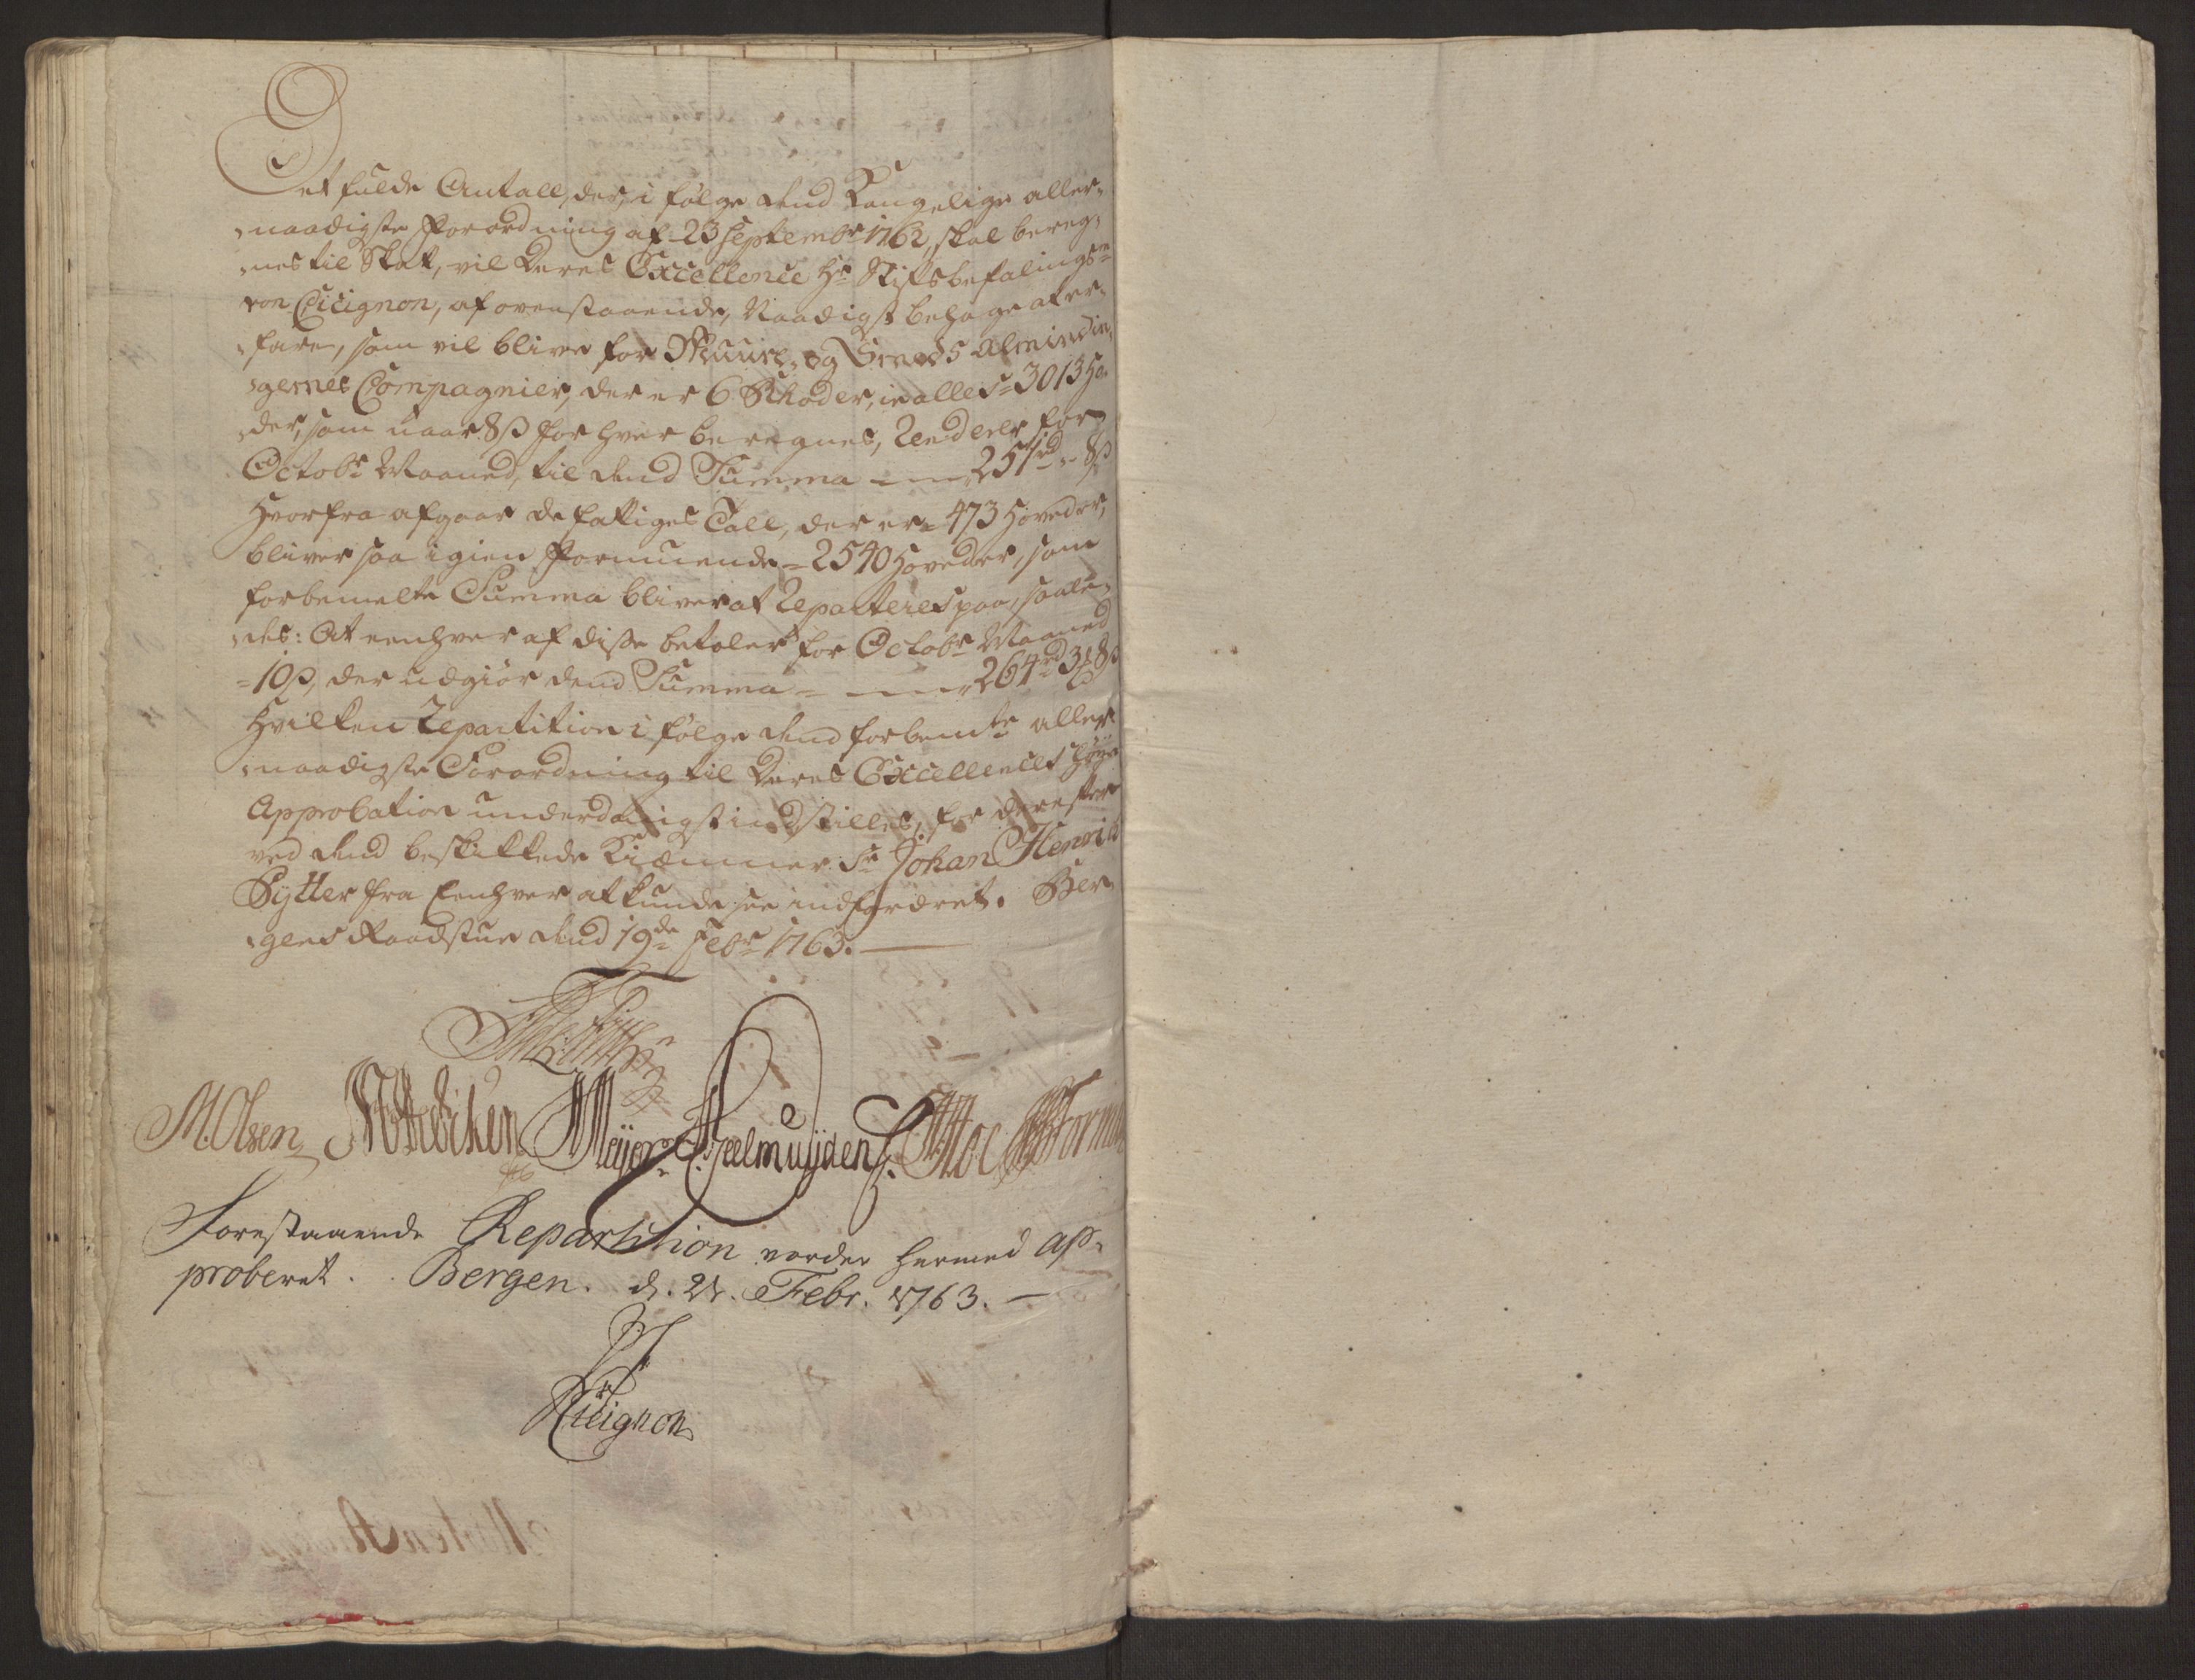 Det fulde Antall, der, i følge dend Kongelige aller-
naadigste Forordning af 23 Septembr 1762, skal bereg-
nes til Skat, vil Deres Excellence Hr Stiftsbefalingsm
von Cicignon, af ovenstaaende, Naadigst behage at er-
fare, som vil blive for Muure- og Almindin-
gernes Compagnier, der er 6 Rhoder, in alles = 3013 Ho-
der, som naar 8 ß for hver beregnes, Renderer for
Octobr Maaned, til dend Summa 251 rd " 8 ß
Hvorfra afgaar de fattiges Tall, der er = 473 Hoveder,
bliver saa igien Formuende = 2540 Hoveder, som
forbemelte Summa bliver at Reparteres paa, saale-
des: At eenhver af disse betaler for Octobr Maaned
= 10 ß, der udgiør dend Summa = 264 rd 3 ₰ 8 ß
Hvilken Repartition i følge dend forbemte aller-
naadigste Forordning til Deres Excellences høye
Approbation underdanigst indstilles, for derefter
ved dend beskikkede Kiæmner Sr Johan Henrich
Sytter fra Eenhver at kunde see indfordret. Ber-
gens Raadstue dend 19de Febr 1763.
M. Olsen Meyer Geelmuyden
Forestaaende Repartition vorder hermed ap-
proberet. Bergen. d. 21. Febr. 1763.
Cicignon